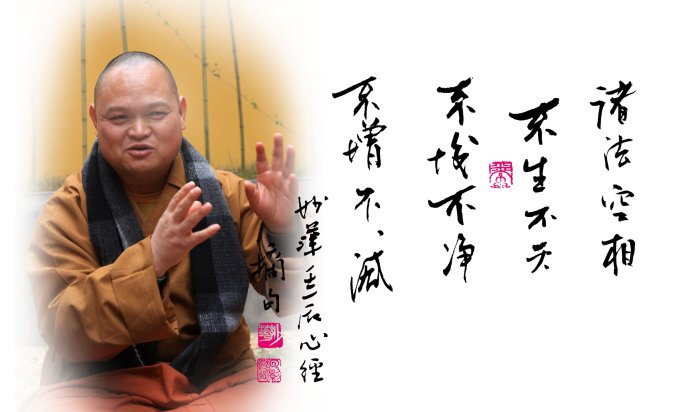 诸法空相
不生不灭
不垢不净
不增不減
妙 壬辰心經
摘句